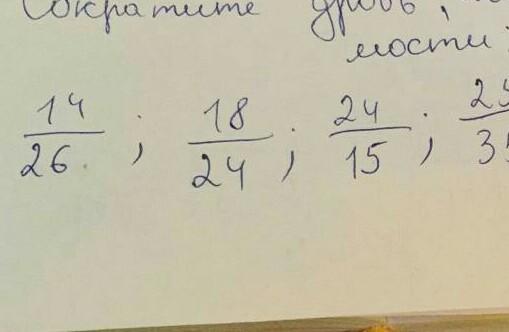 Сократите дробь,
мости:
14/26 ; 18/24 ; 24/15 ;